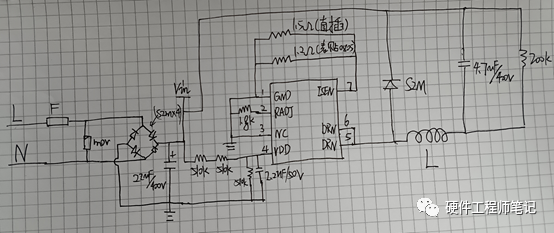 1.5Ω(直插)
1.2Ω
Vin
L
F
(S2M×4)
N
MOV
22uF/400V
510k
510k
51k
2.2uF/50V
18k
1
GND
2
RADJ
3
NC
4
VDD
ISEN
7
6
DRN
5
DRN
S2M
L
4.7uF/400V
200k
硬件工程师笔记